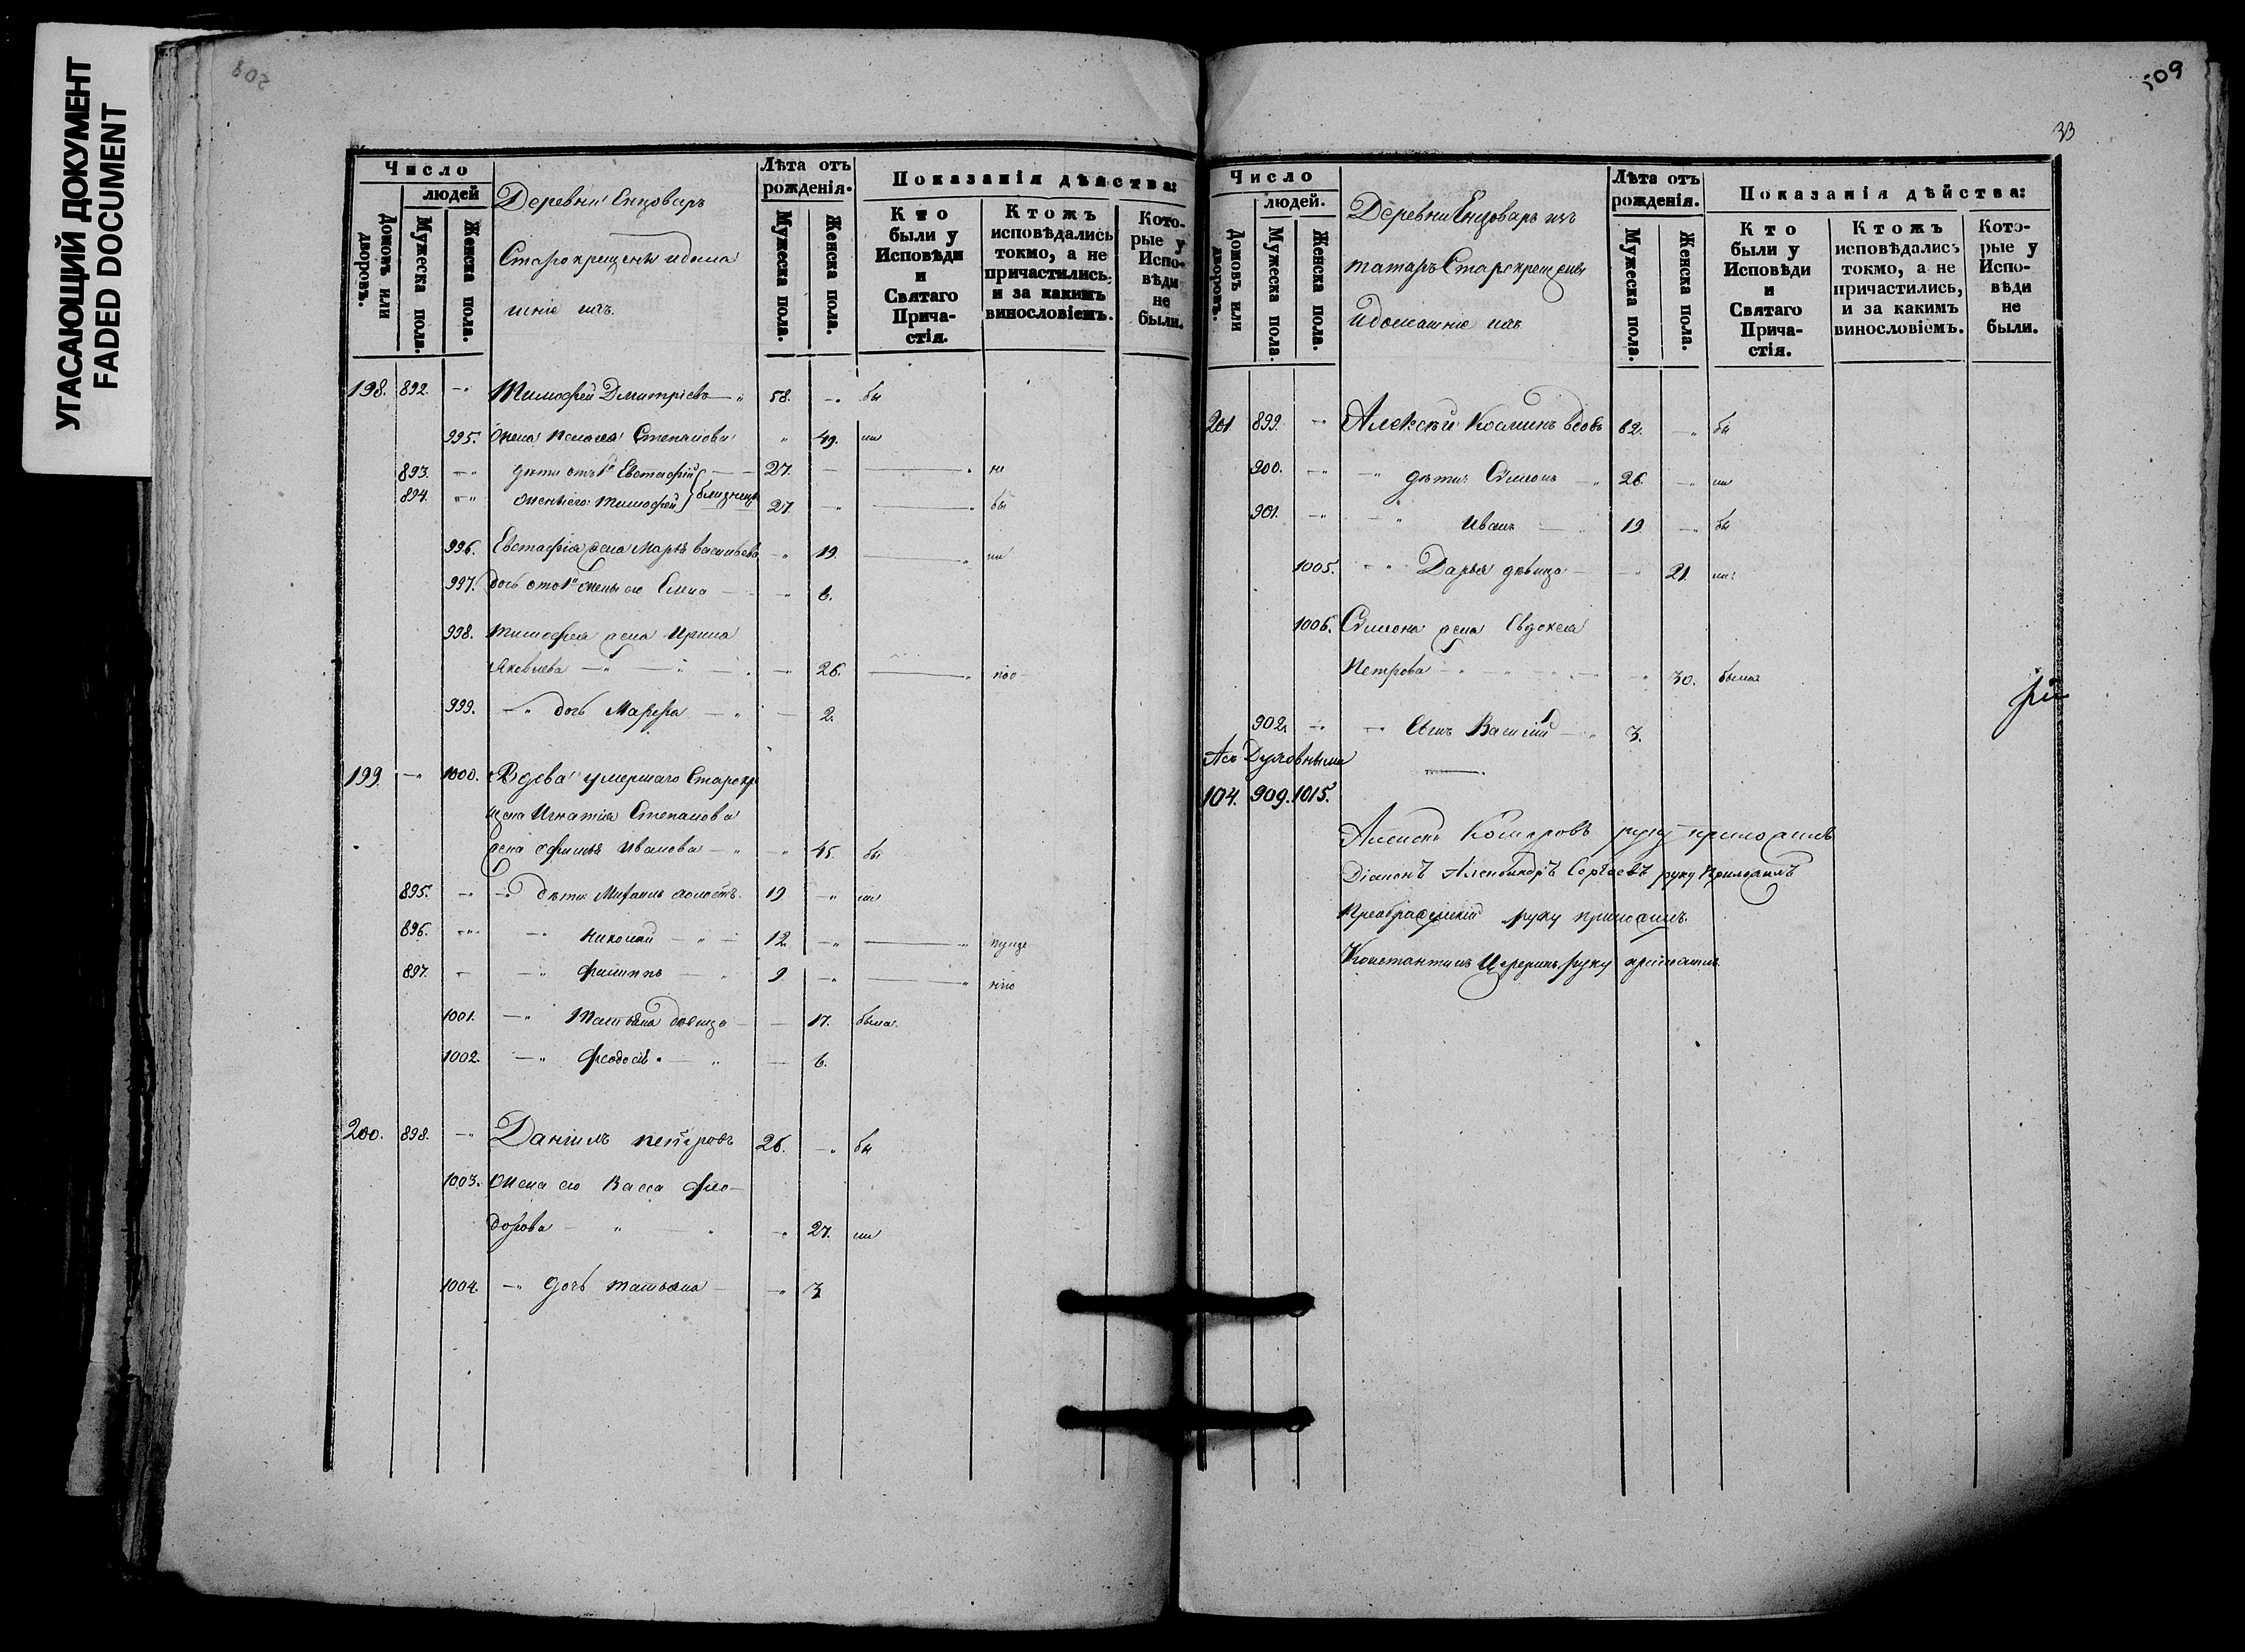 УГАСАЮЩИЙ ДОКУМЕНТ
FADED DOCUMENT
Число
людей
Домовъ или дворовъ.
Мужеска пола.
Женска пола.
Деревни Енцоваръ
Старокрещены и дома
шніе ихъ.
Лѣта отъ рожденія.
Мужеска пола.
Женска пола.
Показанія дѣйства:
Кто были у Исповѣди и Святаго Прича-стія.
Ктожъ исповѣдались токмо, а не причастились, и за какимъ винословіемъ.
Кото-рые у Испо-вѣди не были.
198. 892. Тимофей Дмитріевъ 58. бы
995. Жена Степанова 49. ли
893. дѣти отъ 1й Евстафій 27. не
894. Тимофей близнецы 27 бы
996. Евстафія жена Марья Васильева 19. ли
997. дочь отъ 1й жены Елена 6.
998. Тимофея жена Ирина
Яковлева 26.
999. дочь Марфа 2.
199. 1000. Вдова умершаго Старокр
щена Игнатія Степанова
жена Ивакова 45. бы
895. дѣти Михаилъ холостъ. 19 ли
896. Николай 12.
897. Филиппъ 9.
1001. Татьяна дѣвица 17. была.
1002. Феодосія 6.
200. 898. Даніилъ Петровъ 26. бы
1003. Жена его Васса Фео-
дорова 27. ли
1004. дочь Татьяна 3
509
33
Число
людей.
Домовъ или дворовъ.
Мужеска пола.
Женска пола.
Деревни Енцоваръ изъ
татаръ Старокрещены
и домашніе ихъ
Лѣта отъ рожденія.
Мужеска пола.
Женска пола.
Показанія дѣйства:
Кто были у Исповѣди и Святаго Прича-стія.
Ктожъ исповѣдались токмо, а не причастились, и за какимъ винословіемъ.
Кото-рые у Испо-вѣди не были.
201 899. Алексѣй Косминъ вдовъ 62. бы
900. дѣти: Симеонъ 26. ли
901. Иванъ 19 бы
1005. Дарья дѣвица 21 ли
1006. Симеона жена Евдокія
Петрова 30. была
902. сынъ Василій 3.
А съ Духовными
104. 909. 1015.
руку приложилъ
Діаконъ Александръ Сергѣевъ руку приложилъ
Преображенскій руку приложилъ.
Константинъ руку приложилъ